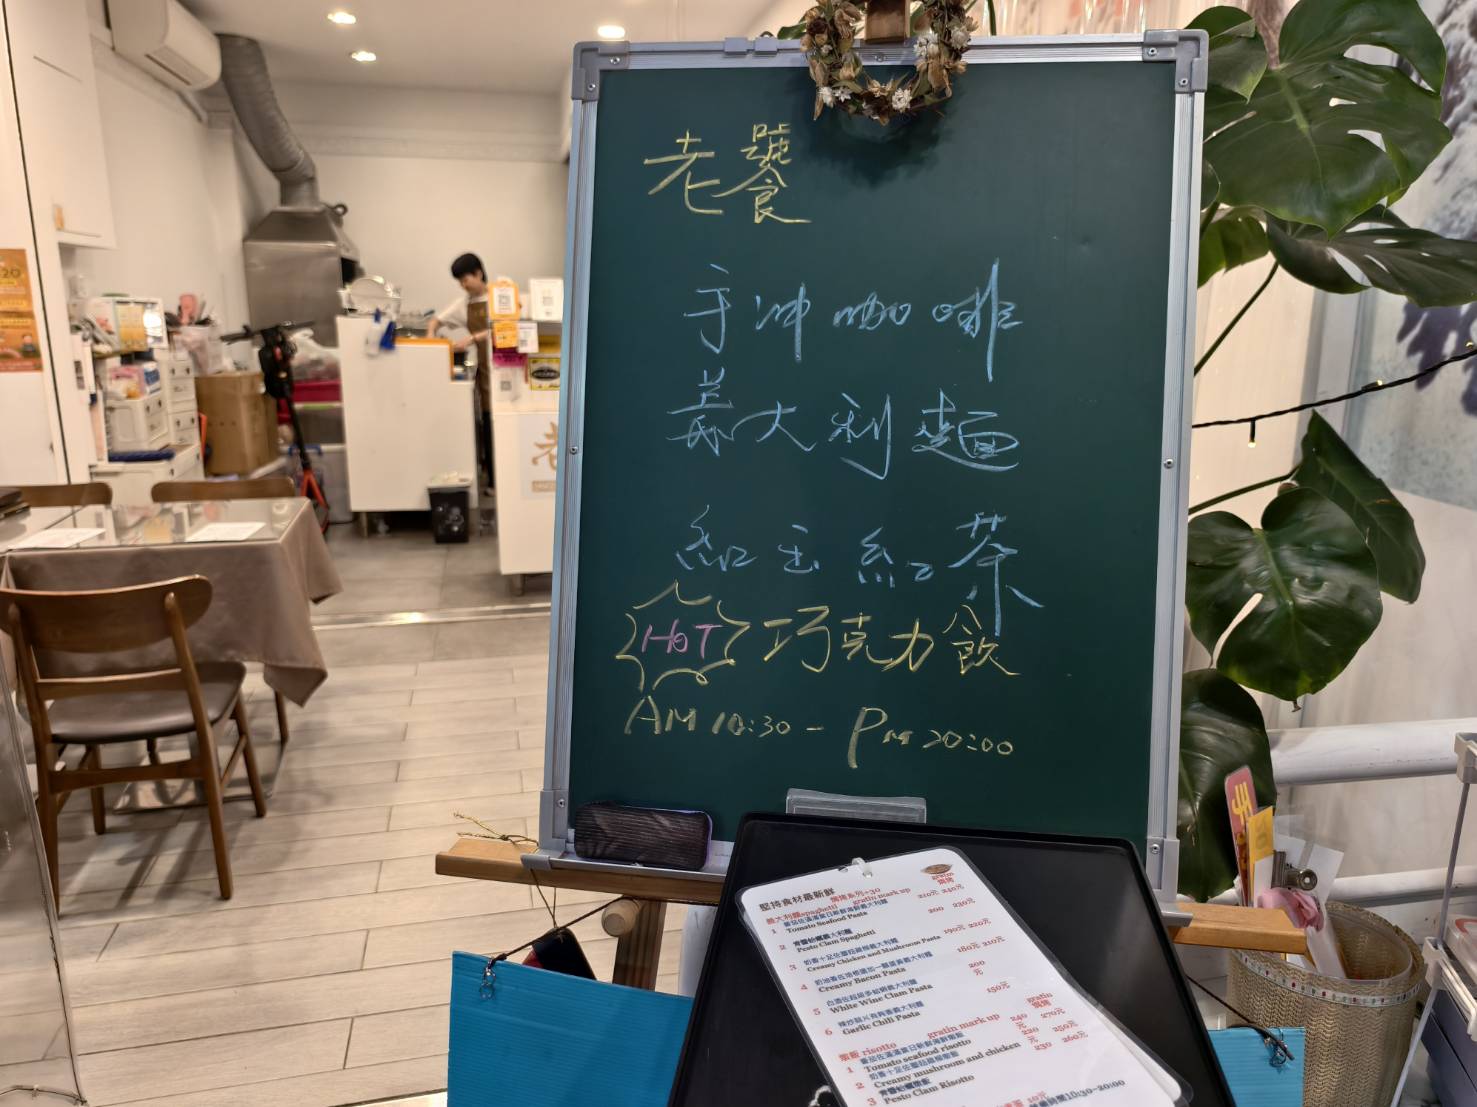 老饕
手沖咖啡
義大利麵
紅玉紅茶
HOT 巧克力飲
AM 10:30 - PM 20:00
堅持食材最新鮮
焗烤系列+30
gratin
焗烤
義大利麵spaghetti gratin mark up 210元 240元
1 番茄佐滿滿當日新鮮海鮮義大利麵
Tomato Seafood Pasta 200 230元
2 青醬蛤蠣義大利麵
Pesto Clam Spaghetti 190元 220元
3 奶香十足佐蘑菇雞椒義大利麵
Creamy Chicken and Mushroom Pasta 180元 210元
4
Creamy Bacon Pasta 200
元
5 白酒佐超級多蛤蠣義大利麵
White Wine Clam Pasta 150元
6 辣炒蒜片義大利麵
Garlic Chili Pasta
gratin
焗烤
燉飯 risotto gratin mark up 240 270元
元
1 番茄佐滿滿當日新鮮海鮮燉飯
Tomato seafood risotto 220 250元
元
2
Creamy mushroom and chicken 230 260元
3 青醬蛤蠣燉飯
Pesto Clam Risotto
10元
營業時間10:30~20:00